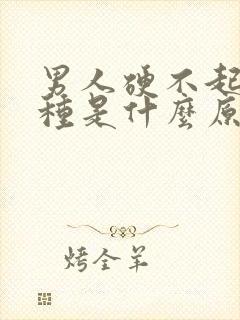 男人硬不起
種是什麼原
烤全羊